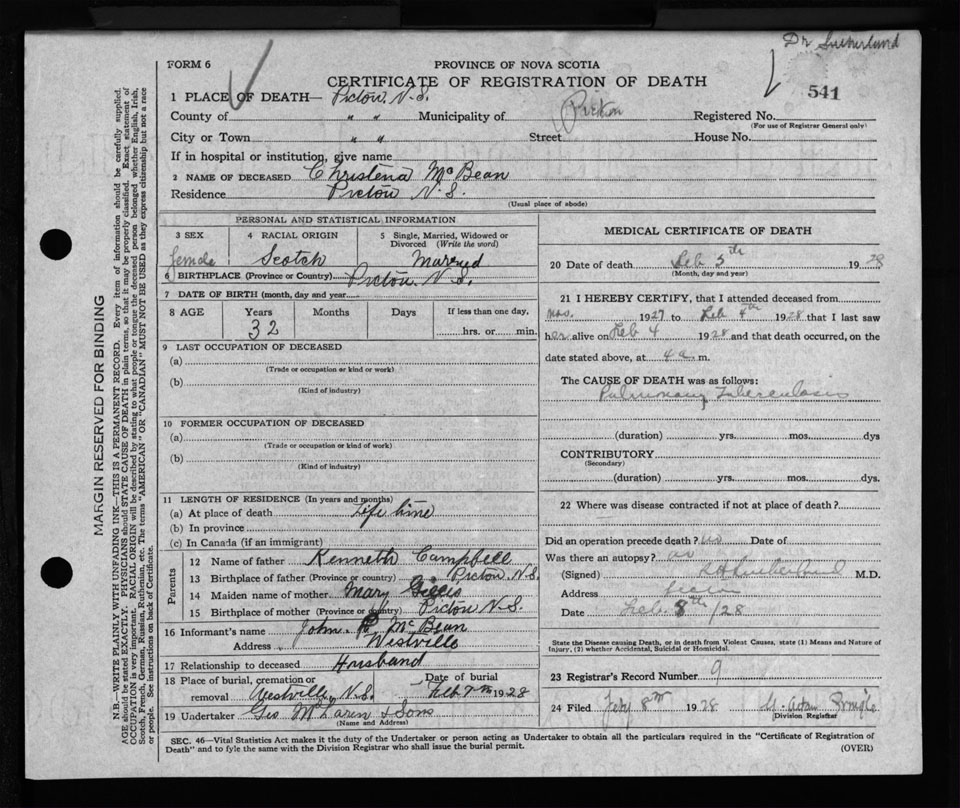 Dr Sutherland
FORM 6
PROVINCE OF NOVA SCOTIA
CERTIFICATE OF REGISTRATION OF DEATH
541
1 PLACE OF DEATH— Pictou, N.S.
County of " " Municipality of Pictou Registered No.
(For use of Registrar General only)
City or Town " " Street House No.
If in hospital or institution, give name
2 NAME OF DECEASED Christena McBean
Residence Pictou N.S.
(Usual place of abode)
PERSONAL AND STATISTICAL INFORMATION
3 SEX 4 RACIAL ORIGIN 5 Single, Married, Widowed or Divorced (Write the word)
female Scotch Married
6 BIRTHPLACE (Province or Country) Pictou N.S.
7 DATE OF BIRTH (month, day and year)
8 AGE Years Months Days If less than one day,
32 hrs. or min.
9 LAST OCCUPATION OF DECEASED
(a)
(Trade or occupation or kind or work)
(b)
(Kind of industry)
10 FORMER OCCUPATION OF DECEASED
(a)
(Trade or occupation or kind of work)
(b)
(Kind of industry)
11 LENGTH OF RESIDENCE (In years and months)
(a) At place of death Life time
(b) In province
(c) In Canada (if an immigrant)
Parents
12 Name of father Kenneth Campbell
13 Birthplace of father (Province or country) Pictou N.S.
14 Maiden name of mother Mary Gillis
15 Birthplace of mother (Province or country) Pictou N.S.
16 Informant's name John McBean
Address Westville
17 Relationship to deceased Husband
18 Place of burial, cremation or removal Westville, N.S. Date of burial Feb 7th 1928
19 Undertaker Geo McLaren & Sons
(Name and Address)
MEDICAL CERTIFICATE OF DEATH
20 Date of death Feb 5th 1928
(Month, day and year)
21 I HEREBY CERTIFY, that I attended deceased from
Nov. 1927 to Feb 4th 1928 that I last saw
her alive on Feb 4 1928 and that death occurred, on the
date stated above, at 4 a. m.
The CAUSE OF DEATH was as follows:
Pulmonary Tuberculosis
(duration) yrs. mos. dys
CONTRIBUTORY
(Secondary)
(duration) yrs. mos. dys.
22 Where was disease contracted if not at place of death?
Did an operation precede death? no Date of
Was there an autopsy? no
(Signed) Sutherland M.D.
Address Pictou
Date Feb. 8th /28
State the Disease causing Death, or in death from Violent Causes, state (1) Means and Nature of
Injury, (2) whether Accidental, Suicidal or Homicidal.
23 Registrar's Record Number 9
24 Filed Feby 8th 1928
Division Registrar
SEC. 46—Vital Statistics Act makes it the duty of the Undertaker or person acting as Undertaker to obtain all the particulars required in the "Certificate of Registration of
Death" and to fyle the same with the Division Registrar who shall issue the burial permit. (OVER)
MARGIN RESERVED FOR BINDING
N.B.—WRITE PLAINLY WITH UNFADING INK—THIS IS A PERMANENT RECORD. Every item of information should be carefully supplied.
AGE should be stated EXACTLY. PHYSICIANS should STATE CAUSE OF DEATH in plain terms, so that it may be properly classified. Exact statement of
OCCUPATION is very important. RACIAL ORIGIN will be described by stating to what people or tongue the deceased person belonged whether English, Irish,
Scotch, French, German, Russian, Ruthenian, etc. The terms "AMERICAN" OR "CANADIAN" MUST NOT BE USED as they express citizenship but not a race
or people. See instructions on back of Certificate.